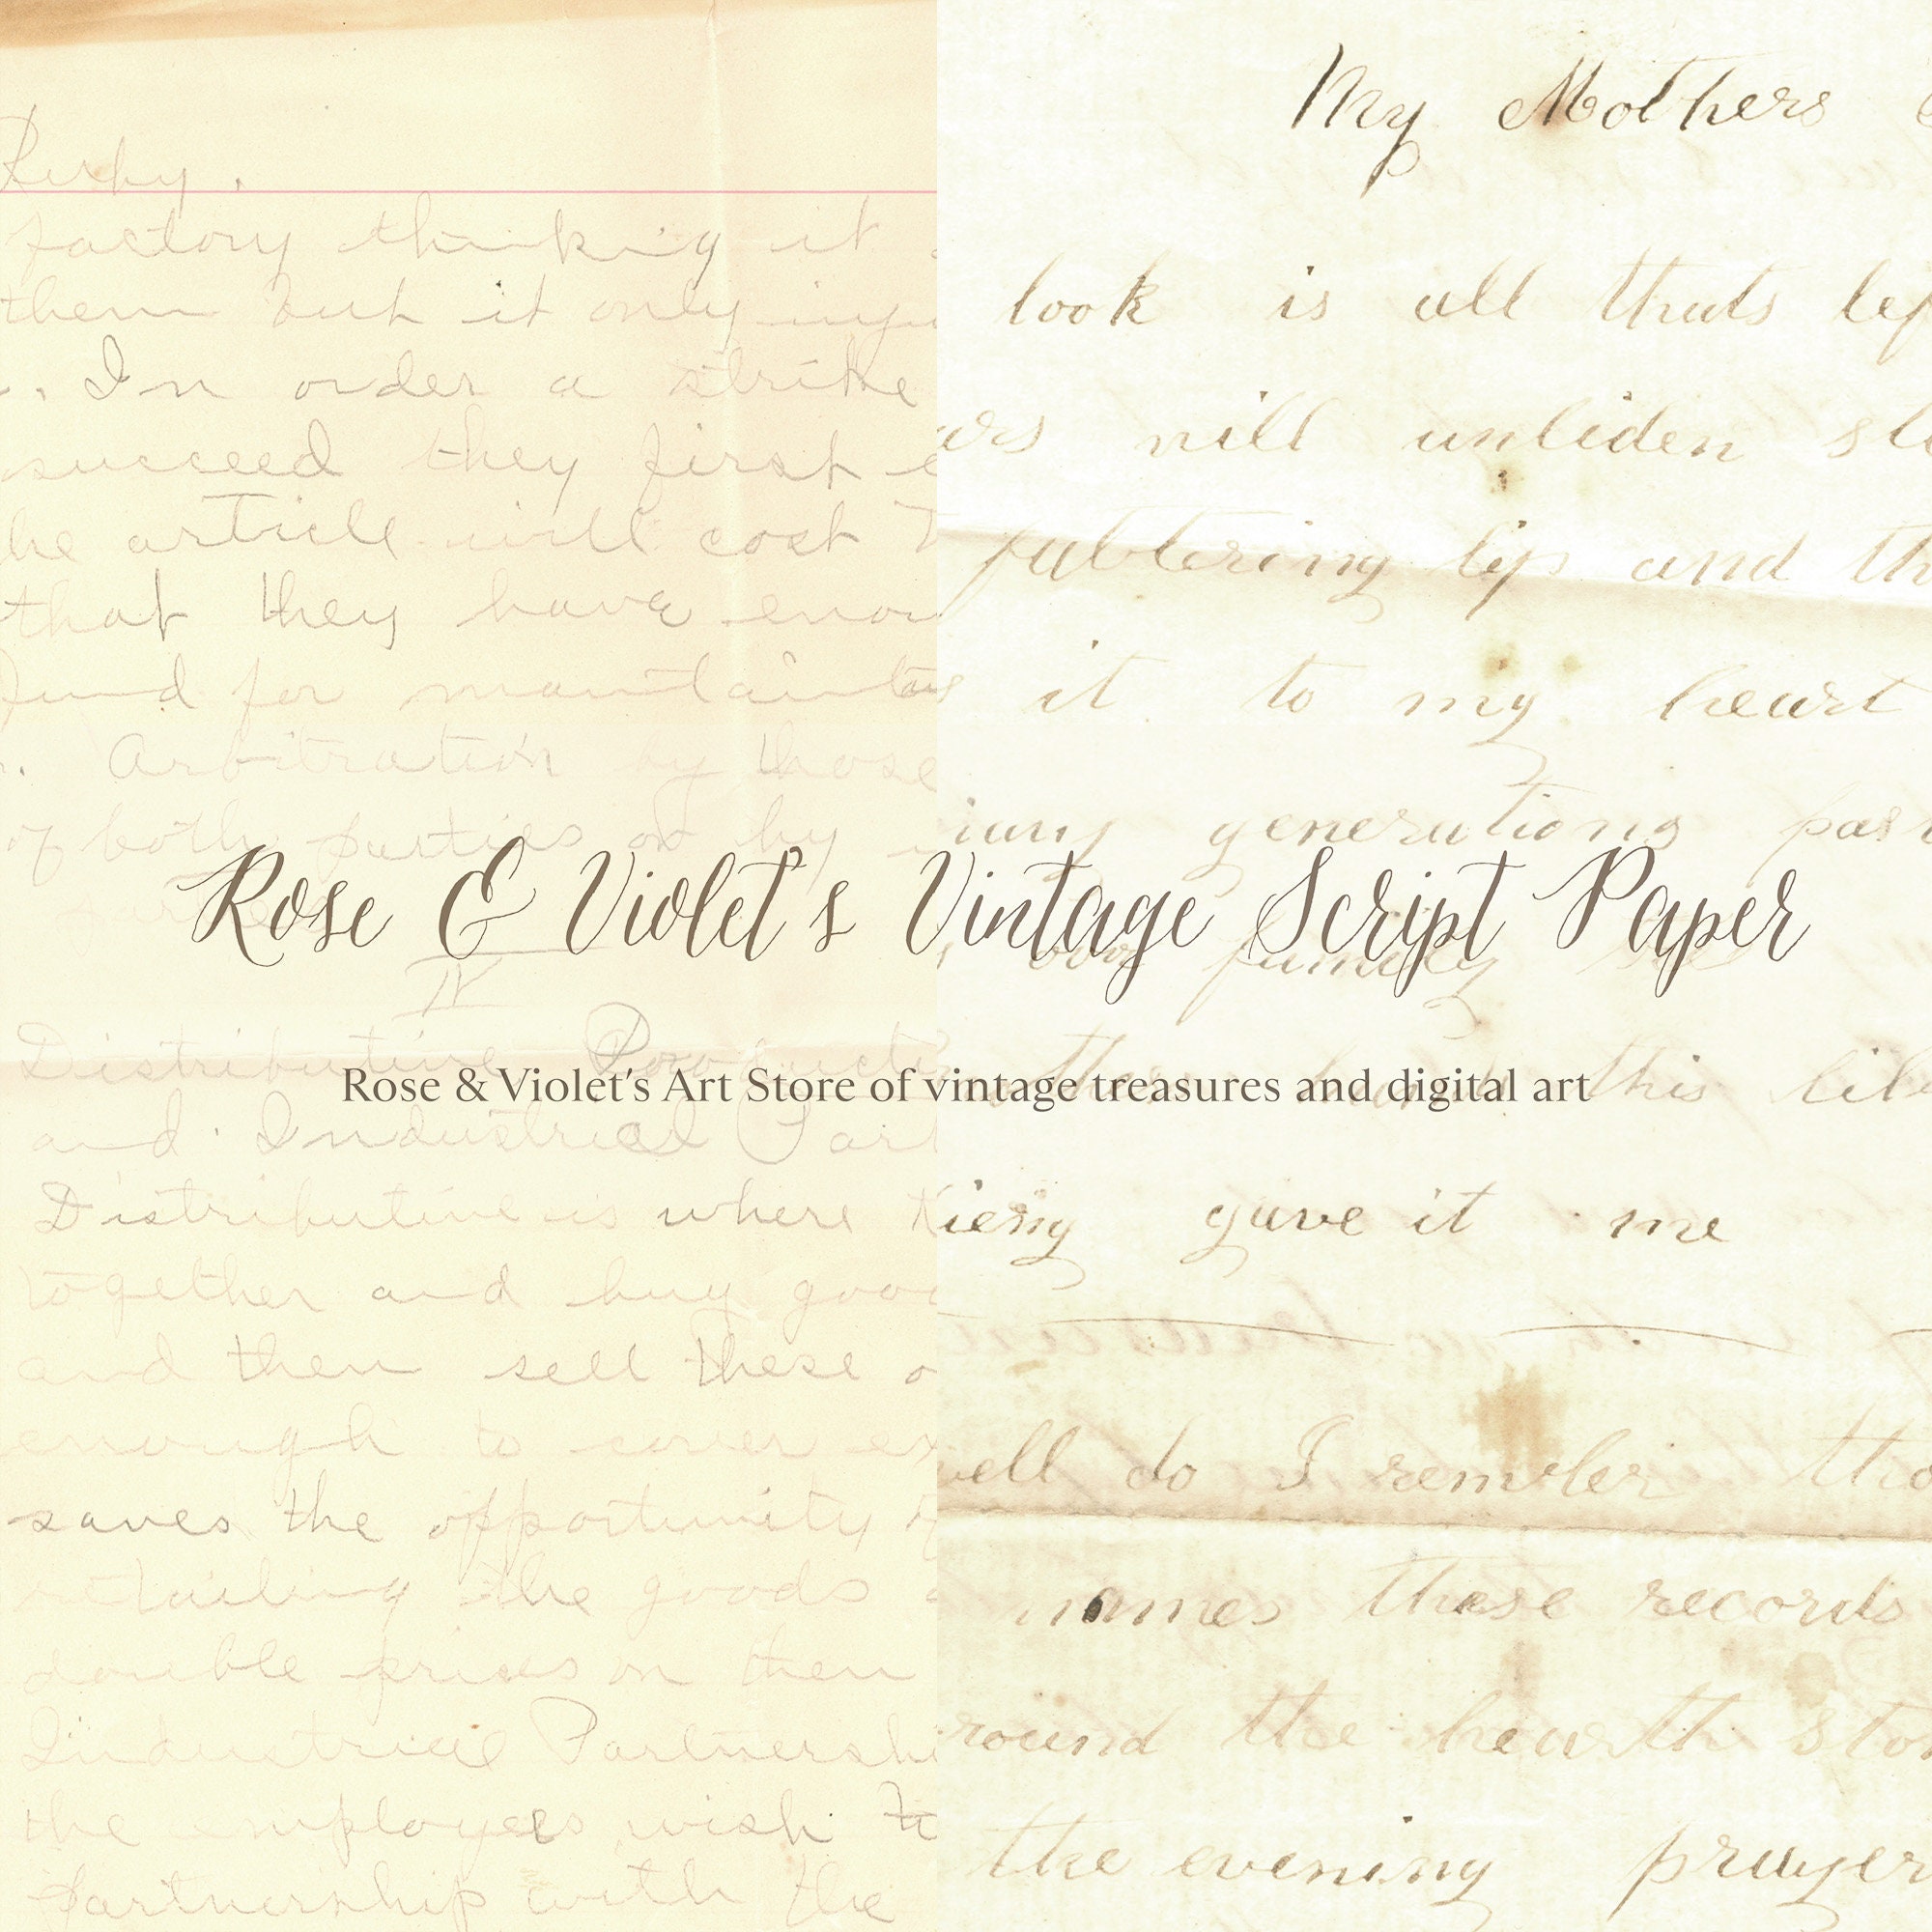 Rose & Violet's Vintage Script Paper
Rose & Violet's Art Store of vintage treasures and digital art
factory thinking it
them but it only
. In order a strike
succeed they first
he article will cost
that they have
fund for
. Arbitration by those
of both parties or by
IV
Distributive
and Industrial Part
Distributive is where
together and buy
and then sell these
enough to cover
saves the opportunity
retailing the goods
double prices on then
Industrial
the employees wish to
partnership with the
My Mothers
look is all thats
will unbiden
faltering lip and
it to my heart
generations
our family
this
gave it me
well do I
names these records
round the hearth
the evening prayer